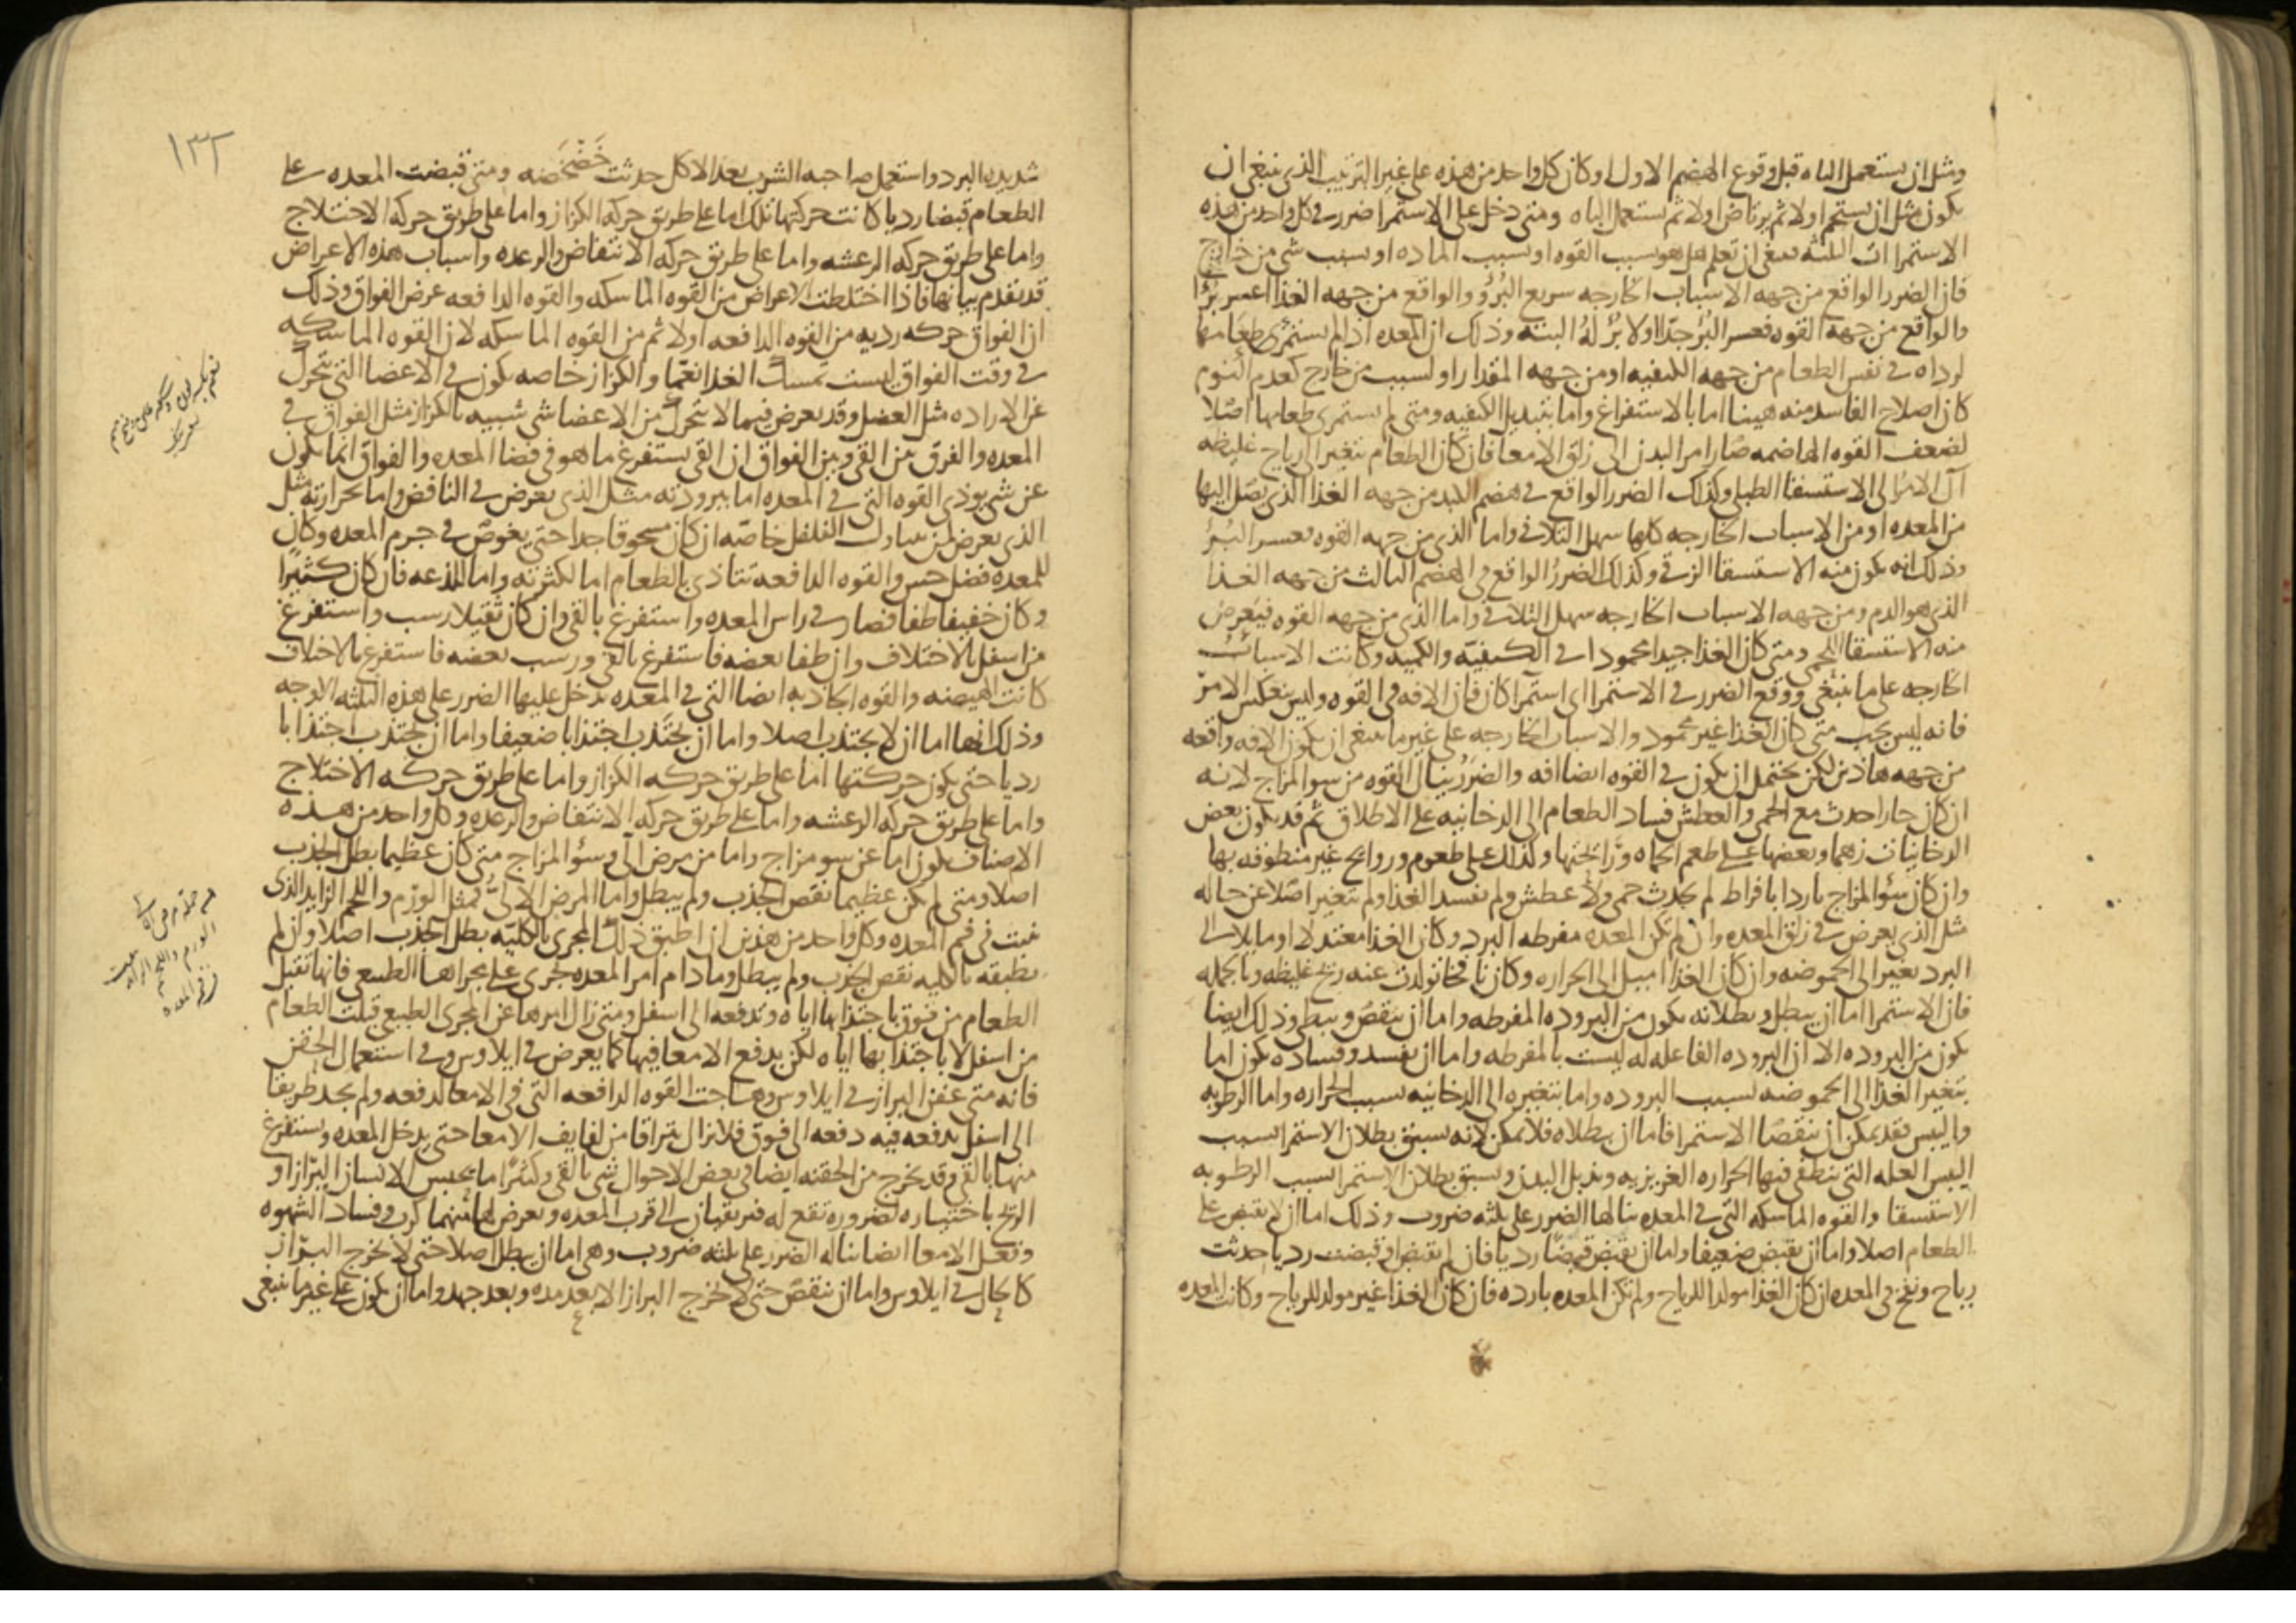 ومثل ان يستعمل الباه قبل وقوع الهضم الاول او كان كل واحد من هذه على غير الترتيب الذي ينبغي ان
يكون مثل ان يستحم اولا ثم يرتاض او لا ثم يستعمل الباه ومتى دخل على الاستمرا ضرر في كل واحد من هذه
الاستمراات الثلثه ينبغي ان تعلم هل هو بسبب القوه او بسبب الماده او بسبب شي من خارج
فان الضرر الواقع من جهه الاسباب الخارجه سريع البُرُؤ والواقع من جهه الغذا اعسر بُرًا
والواقع من جهه القوه فعسر البُرُ جدّا او لا بُرُ لهُ البته وذلك ان المعده اذا لم يستمرئ طعامها
لرداه في نفس الطعام من جهه الكيفيه او من جهه المقدار او لسبب من خارج كعدم النوم
كان اصلاح الفاسد منه هينا اما بالاستفراغ واما بتبديل الكيفيه ومتى لم يستمرى طعامها اصلا
لضعف القوه الهاضمه صار امر البدن الى زلق الامعا فان كان الطعام يتغير الى رياح غليظه
آل الامر الى الاستسقا الطبلي وكذلك الضرر الواقع في هضم الكبد من جهه الغذا الذي يصل اليها
من المعده او من الاسباب الخارجه كلها سهل التلافي واما الذي من جهه القوه فعسر البُرُ
وذلك انه يكون منه الاستسقا الزقي وكذلك الضررُ الواقع في الهضم الثالث من جهه الغذا
الذي هو الدم ومن جهه الاسباب الخارجه سهل التلافي واما الذي من جهه القوه فيعرض
منه الاستسقا اللحمي ومتى كان الغذا جيدا محمودا في الكيفيّه والكميه وكانت الاسبابُ
الخارجه على ما ينبغي ووقع الضرر في الاستمرا اي استمرا كان فان الافه في القوه وليس ينعكس الامر
فانه ليس يجب متى كان الغذا غير محمود والاسباب الخارجه على غير ما ينبغي ان يكون الافه واقعه
من جهه هاذين لكن يحتمل ان يكون في القوه ايضا افه والضررُ ينال القوه من سو المزاج لانه
ان كان حارا حدث مع الحمى والعطش فساد الطعام الى الدخانيه على الاطلاق ثم قد يكون بعض
الدخانيات زهما وبعضها على طعم الحماه ورائحتها وكذلك على طعوم وروائح غير منطوقه بها
وان كان سؤ المزاج باردا بافراط لم يحدث حمى ولا عطش ولم يفسد الغذا ولم يتغير اصلا عن حاله
مثل الذي يعرض في زلق المعده وان لم تكن المعده مفرطه البرد وكان الغذا معتدلا او مايلا الى
البرد تغير الى الحموضه وان كان الغذا اميل الى الحراره وكان نافخا تولدت عنه ريح غليظه وبالجمله
فان الاستمرا اما ان يبطل وبطلانه يكون من البروده المفرطه واما ان ينقص ويبطي وذلك ايضا
يكون من البروده الا ان البروده الفاعله له ليست بالمفرطه واما ان يفسد وفساده يكون اما
بتغير الغذا الى الحموضه بسبب البروده واما بتغيره الى الدخانيه بسبب الحراره واما الرطوبه
واليبس فقد يمكن ان ينقصا الاستمرا فاما ان يبطلاه فلا يمكن لانه يسبق بطلان الاستمرا بسبب
اليبس العله التي ينطفي فيها الحراره الغريزيه ويذبل البدن ويسبق بطلان الاستمرا بسبب الرطوبه
الاستسقا والقوه الماسكه التي في المعده ينالها الضرر على ثلثه ضروب وذلك اما ان لا يقبض على
الطعام اصلا واما ان يقبض ضعيفا واما ان يقبض قبضًا رديا فان لم يقبض او قبضت رديا حدثت
رياح ونفخ في المعده ان كان الغذا مولدا للرياح ولم تكن المعده بارده فان كان الغذا غير مولد للرياح وكانت المعده
١٣٢
شديده البرد واستعمل صاحبه الشرب بعد الاكل حدثت خَضْخَضه ومتى قبضت المعده على
الطعام قبضا رديا كانت حركتها تلك اما على طريق حركه الكزاز واما على طريق حركه الاختلاج
واما على طريق حركه الرعشه واما على طريق حركه الانتفاض والرعده واسباب هذه الاعراض
قد تقدم بيانها فاذا اختلطت الاعراض من القوه الماسكه والقوه الدافعه عرض الفواق وذلك
ان الفواق حركه رديه من القوه الدافعه اولا ثم من القوه الماسكه لان القوه الماسكه
في وقت الفواق ليست تمسك الغذا نعمّا والكزاز خاصه يكون في الاعضا التي تتحرك
عن الاراده مثل العضل وقد يعرض فيما لا يتحرك من الاعضا شي شبيه بالكزاز مثل الفواق في
المعده والفرق بين القي وبين الفواق ان القي يستفرغ ما هو في فضا المعده والفواق انما يكون
عن شي يوذي القوه التي في المعده اما ببرودته مثل الذي يعرض في النافض واما بحرارته مثل
الذي يعرض لمن يتناول الفلفل خاصّه ان كان مسحوقا جدا حتى يغوص في جرم المعده وكان
للمعده فضل حس والقوه الدافعه تتاذى بالطعام اما لكثرته واما للذعه فان كان كثيرًا
وكان خفيفا طفا فصار في راس المعده واستفرغ بالقي وان كان ثقيلا رسب واستفرغ
من اسفل بالاختلاف وان طفا بعضه فاستفرغ بالقي ورسب بعضه فاستفرغ بالاختلاف
كانت الهيضه والقوه الجاذبه ايضا التي في المعده يدخل عليها الضرر على هذه الثلثه الاوجه
وذلك انها اما ان لا يجتذب اصلا واما ان يجتذب اجتذابا ضعيفا واما ان يجتذب اجتذابا
رديا حتى يكون حركتها اما على طريق حركه الكزاز واما على طريق حركه الاختلاج
واما على طريق حركه الرعشه واما على طريق حركه الانتفاض والرعده وكل واحد من هذه
الاصناف يكون اما عن سو مزاج واما من مرض آلي وسؤ المزاج متى كان عظيما بطل الجذب
اصلا ومتى لم يكن عظيما نقص الجذب ولم يبطل واما المرض الالي فمثل الورم واللحم الزايد الذي
ينبت في فم المعده وكل واحد من هذين ان اطبق ذلك المجرى بالكليه بطل الجذب اصلا وان لم
يطبقه بالكليه نقص الجذب ولم يبطل وما دام امر المعده يجرى على مجراها الطبيعي فانها تقبل
الطعام من فوق باجتذابها اياه وتدفعه الى اسفل ومتى زال امرها عن المجرى الطبيعي قبلت الطعام
من اسفل لا باجتذابها اياه لكن بدفع الامعا فيها كما يعرض في ايلاوس وفي استعمال الحقن
فانه متى عفن البراز في ايلاوس وهاجت القوه الدافعه التي في الامعا لدفعه ولم يجد طريقا
الى اسفل يدفعه فيه دفعه الى فوق فلا يزال يتراقا من لفايف الامعا حتى يدخل المعده ويستفرغ
منها بالقي وقد يخرج من الحقنه ايضا في بعض الاحوال شي بالقي وكثيرًا ما يحبس الانسان البراز او
الريح باختياره لضروره تقع له فيرتقيان الى قرب المعده ويعرض لها منهما كرب وفساد الشهوه
وفعل الامعا ايضا يناله الضرر على ثلثه ضروب وهي اما ان يبطل اصلا حتى لا يخرج البراز
كالحال في ايلاوس واما ان ينقص حتى لا يخرج البراز الا بعد مده وبعد جهد واما ان يكون على غير ما ينبغي